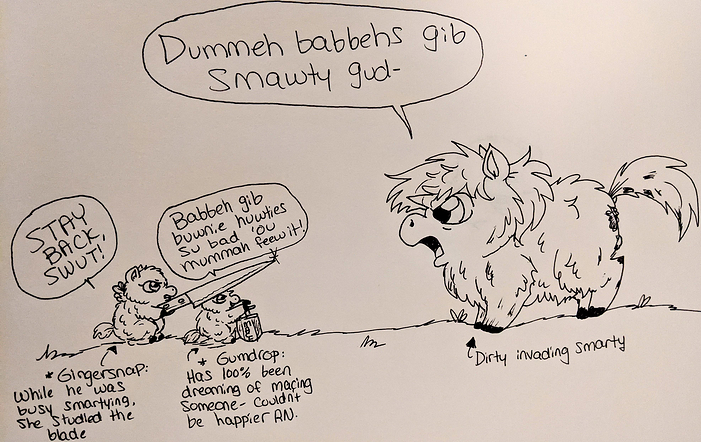 Dummeh babbehs gib
Smawty gud-
STAY
BACK
SWUT!
Babbeh gib
buwnie huwties
su bad 'ou
mummah feew it!
* Gingersnap:
While he was
busy smartying,
she studied the
blade
* Gumdrop:
Has 100% been
dreaming of macing
someone- couldn't
be happier RN.
Dirty invading smarty